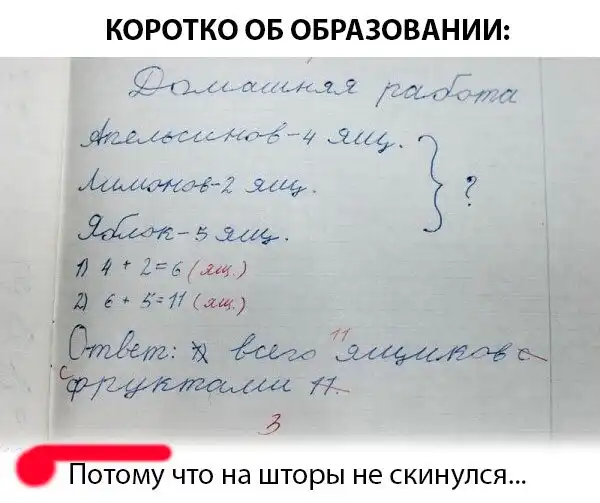 КОРОТКО ОБ ОБРАЗОВАНИИ:
Домашняя работа
Апельсинов-4 ящ.
Лимонов-2 ящ. } ?
Яблок-5 ящ.
1) 4 + 2=6 (ящ.)
2) 6 + 5=11 (ящ.)
Ответ: всего 11 ящиков с
с фруктами 11.
3
Потому что на шторы не скинулся...